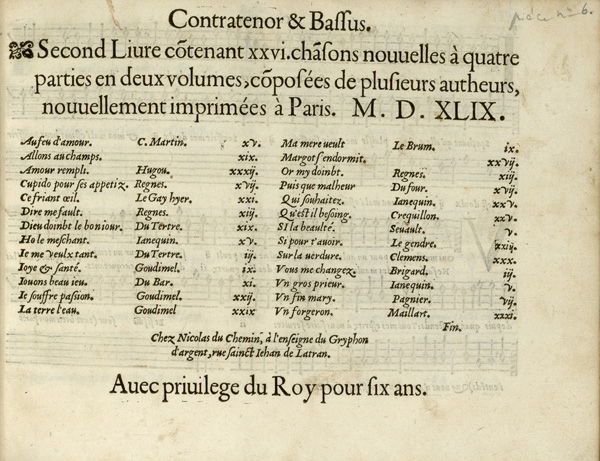 Contratenor & Baſſus.
pièce n° 6.
Second Liure cõtenant xxvi. chãſons nouuelles à quatre
parties en deux volumes, cõpoſées de pluſieurs autheurs,
nouuellement imprimées à Paris. M. D. XLIX.
Au feu d'amour. C. Martin. xv.
Allons au champs. xix.
Amour rempli. Hugou. xxxij.
Cupido pour ſes appetiz. Regnes. xvij.
Ce friant œil. Le Gay hyer. xxi.
Dire me fault. Regnes. xiij.
Dieu doinbt le boniour. Du Tertre. xix.
Ho le meſchant. Ianequin. xv.
Ie me veulx tant. Du Tertre. iij.
Ioye & ſanté. Goudimel. ix.
Iouons beau ieu. Du Bar. xi.
Ie ſouffre paſsion. Goudimel. xxij.
La terre l'eau. Goudimel xxix
Ma mere ueult Le Brum. ix.
Margot ſ'endormit. xxvij.
Or my doinbt. Regnes. xiij.
Puis que malheur Du four. xvij.
Qui ſouhaitez. Ianequin. xxv.
Qu'eſt il beſoing. Crequillon. xxv.
SI la beaulté. Seuault. v.
Si pour t'auoir. Le gendre. xxij.
Sur la uerdure. Clemens. xxx.
Vous me changez. Brigard. iij.
Vn gros prieur. Ianequin. v.
Vn fin mary. Pagnier. vij.
Vn forgeron. Maillart. xxxi.
Fin.
Chez Nicolas du Chemin, à l'enſeigne du Gryphon
d'argent, rue ſainct Iehan de Latran.
Auec priuilege du Roy pour ſix ans.